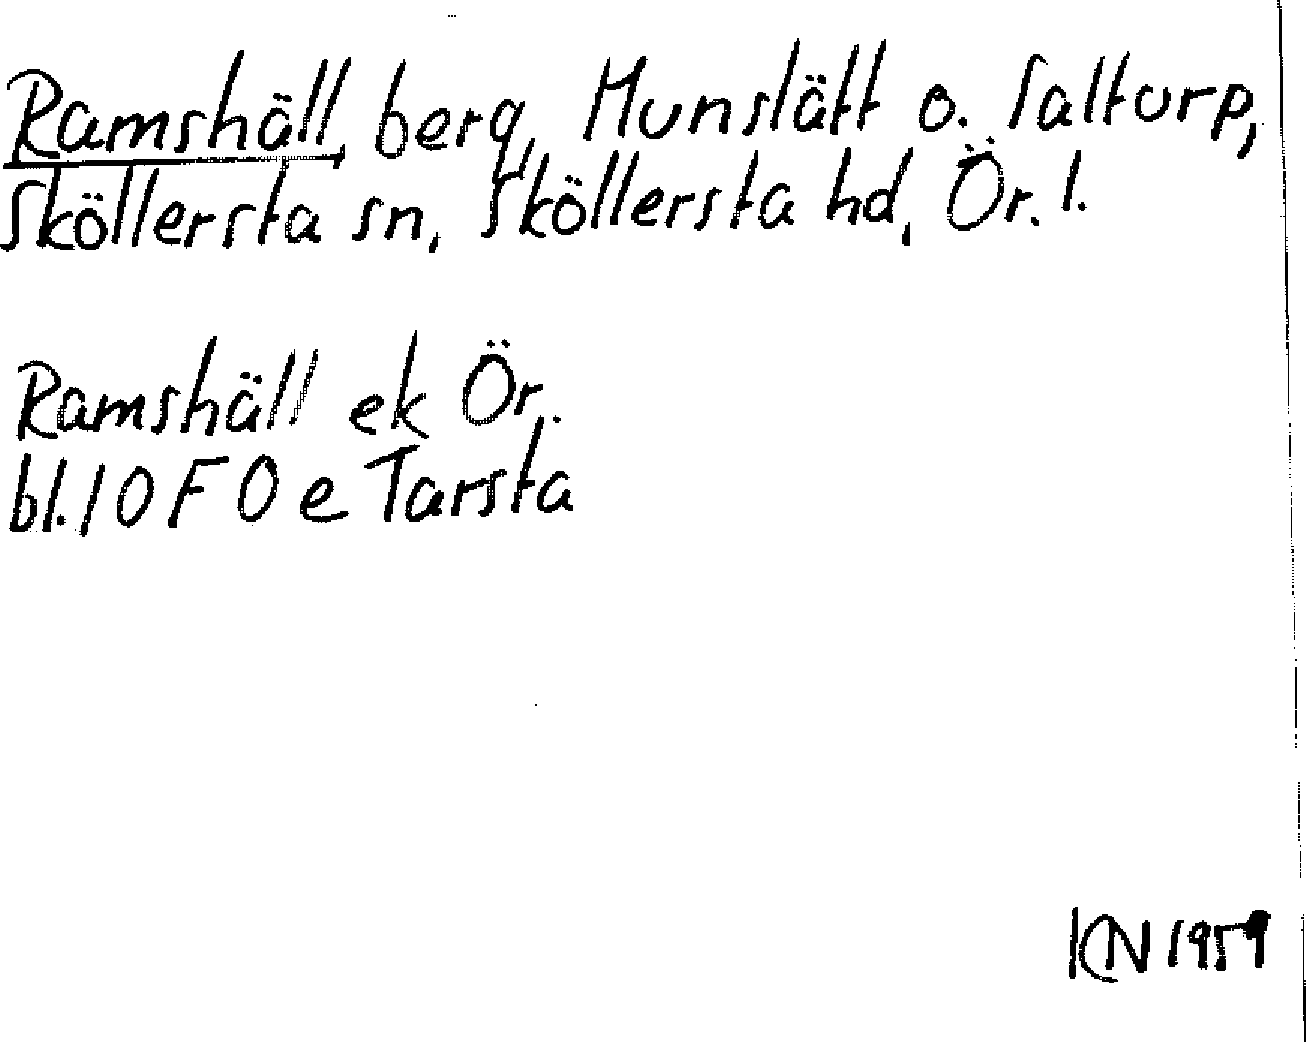 Ramshäll, berg, Hunslätt o. Saltorp,
Sköllersta sn, Sköllersta hd, Ör. l.
Ramshäll ek Ör.
bl. 10 F 0 e Tarsta
KN 1959